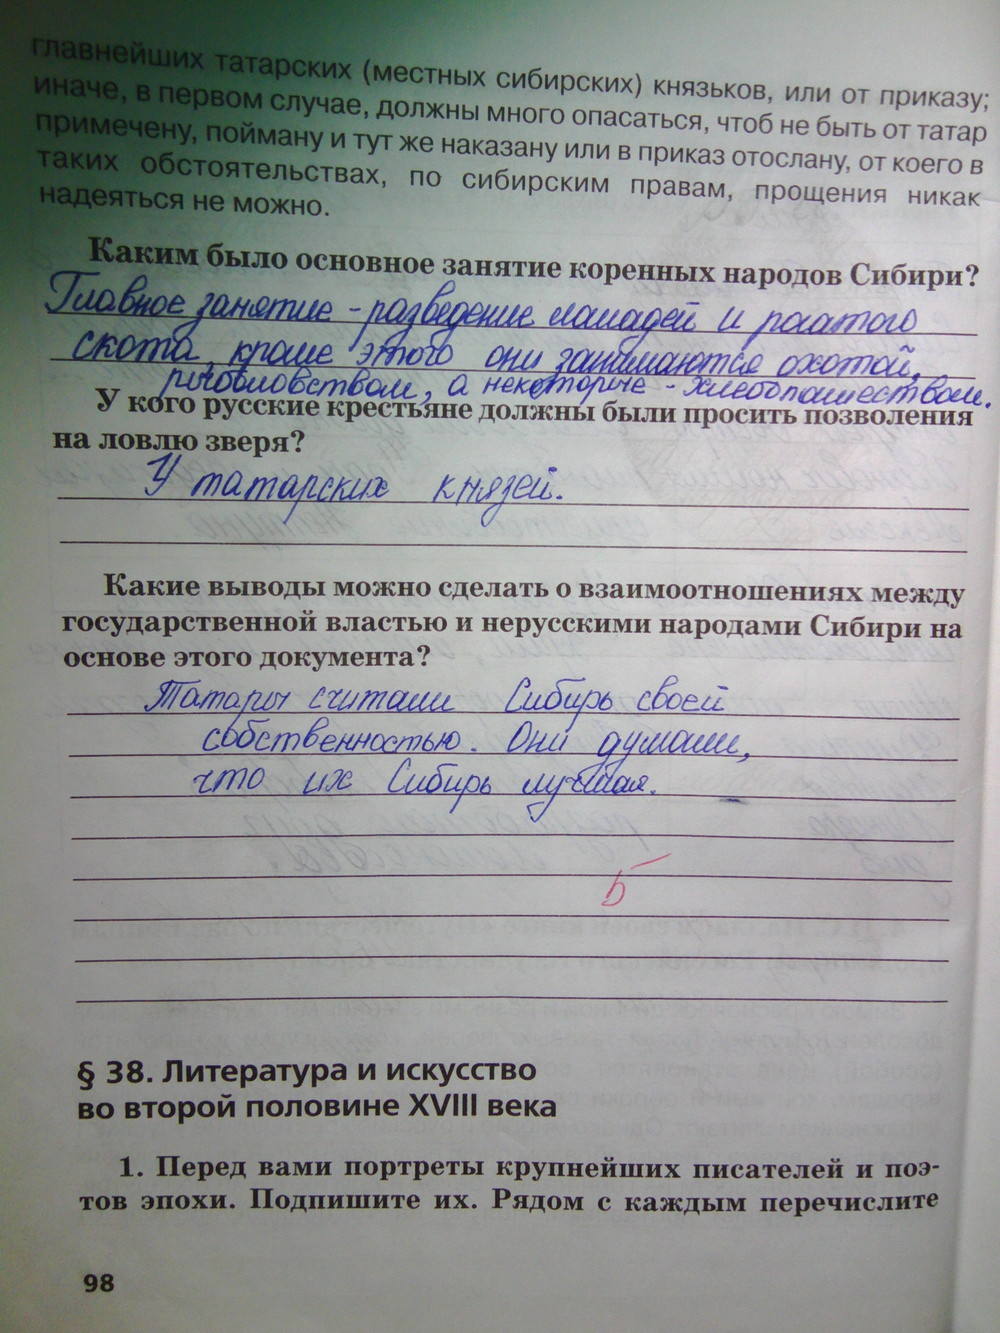 главнейших татарских (местных сибирских) князьков, или от приказу;
иначе, в первом случае, должны много опасаться, чтоб не быть от татар
примечену, пойману и тут же наказану или в приказ отослану, от коего в
таких обстоятельствах, по сибирским правам, прощения никак
надеяться не можно.
Каким было основное занятие коренных народов Сибири?
Главное занятие - разведение лошадей и рогатого
скота, кроме этого они занимаются охотой,
рыболовством, а некоторые - хлебопашеством.
У кого русские крестьяне должны были просить позволения
на ловлю зверя?
У татарских князей.
Какие выводы можно сделать о взаимоотношениях между
государственной властью и нерусскими народами Сибири на
основе этого документа?
Татары считали Сибирь своей
собственностью. Они думали,
что их Сибирь лучшая.
5
§ 38. Литература и искусство
во второй половине XVIII века
1. Перед вами портреты крупнейших писателей и поэ-
тов эпохи. Подпишите их. Рядом с каждым перечислите
98